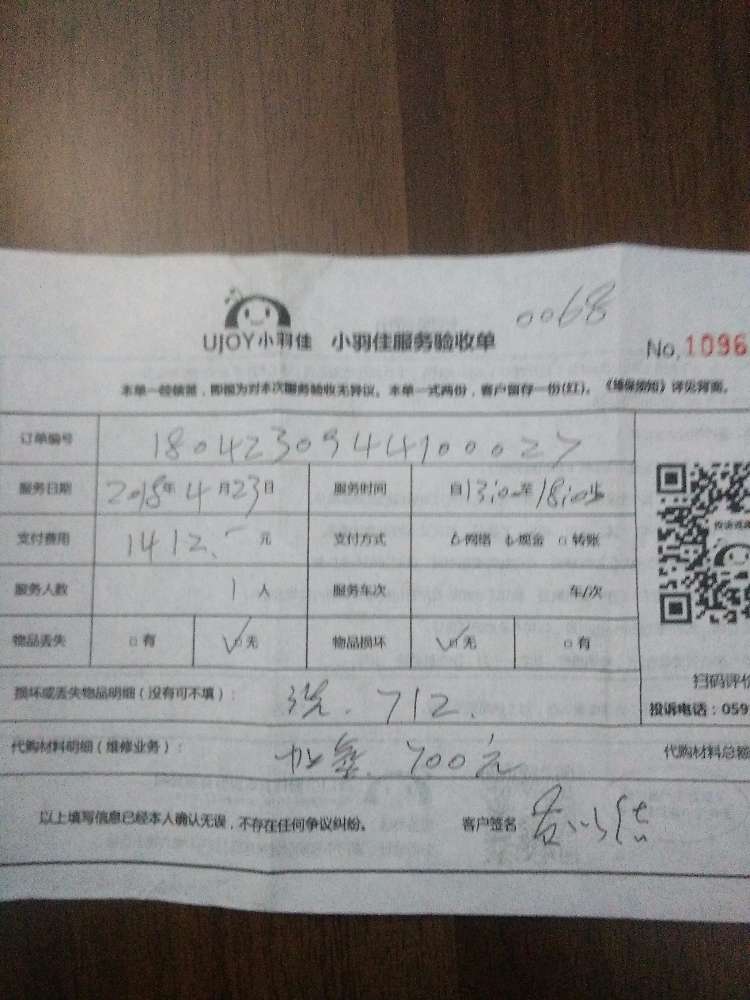 0068
UJOY小羽佳 小羽佳服务验收单 No.1096
本单一经签署,即视为对本次服务验收无异议。本单一式两份,客户留存一份(红)。《维保须知》详见背面。
订单编号 18042309444100027
服务日期 2018年4月23日 服务时间 自13:00至18:00止
支付费用 1412.- 元 支付方式 网络 现金 转账
服务人数 1人 服务车次 车/次
物品丢失 □有 ✓无 物品损坏 ✓无 □有
扫码评价
损坏或丢失物品明细(没有可不填): 712.
投诉电话:059
代购材料明细(维修业务): 700元 代购材料总额
以上填写信息已经本人确认无误,不存在任何争议纠纷。 客户签名